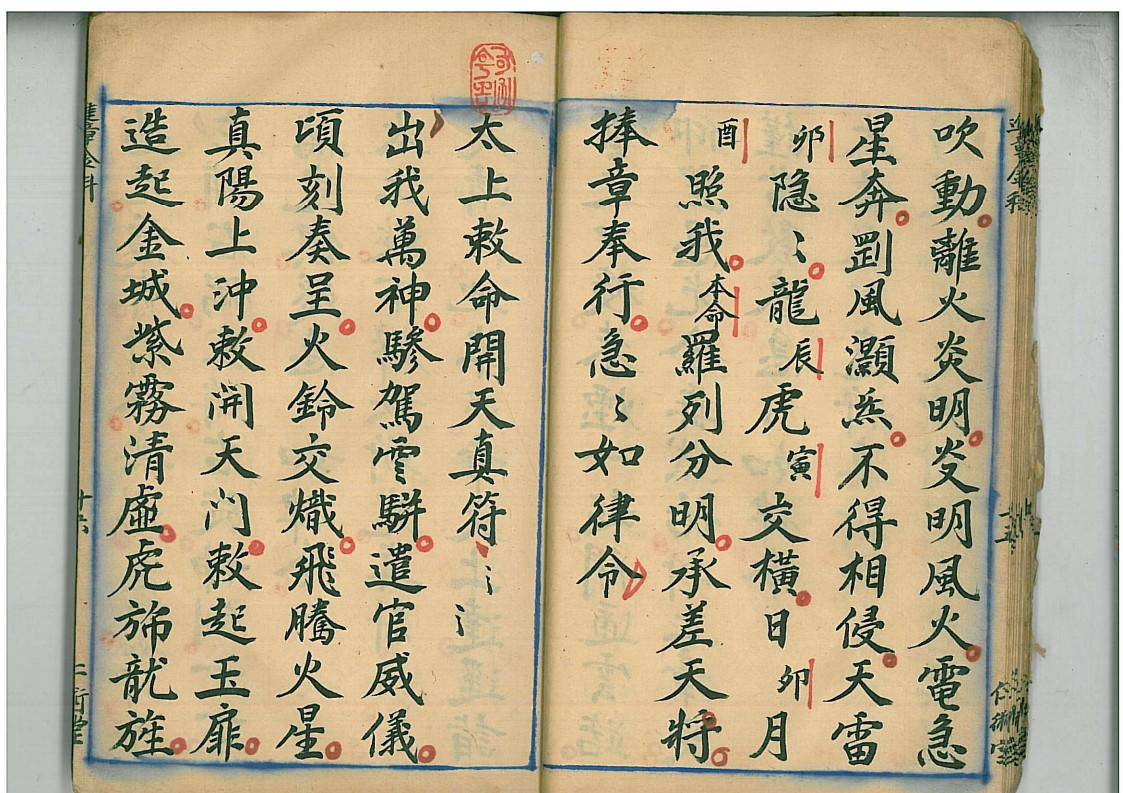 吹動離火炎明炎明風火電急
星奔罡風灝炁不得相侵天雷
卯隐〻龍辰虎寅交橫日卯月
酉照我本命羅列分明承差天將
捧章奉行急〻如律令
太上敕命開天真符〻〻
出我萬神驂駕雲騈遣官威儀
頃刻奏呈火鈴交熾飛騰火星
真陽上沖敕開天门敕起玉扉
造起金城紫霧清虛虎斾龍旌